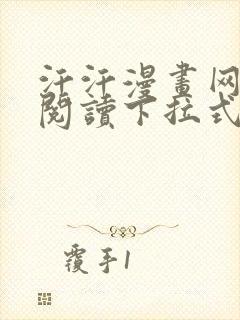 汗汗漫畫网
閱讀下拉式
覆手1